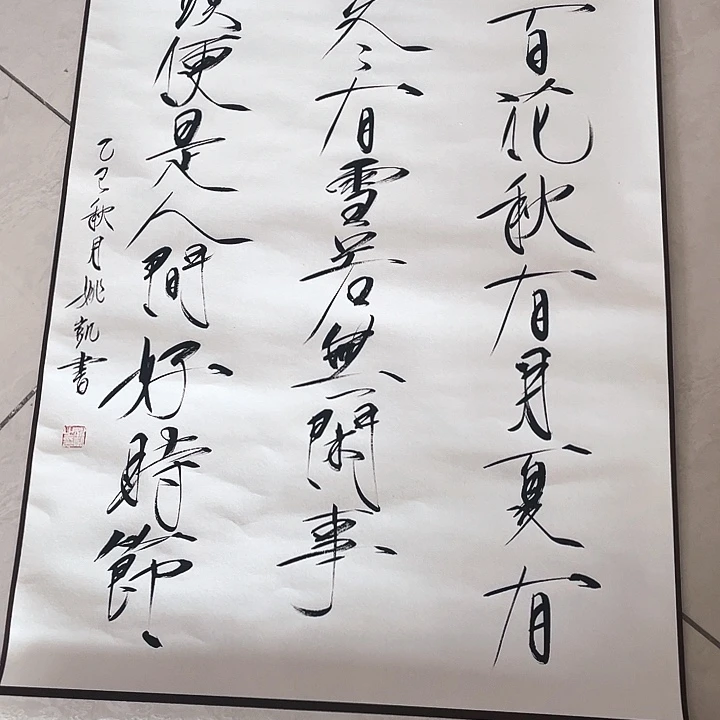 百花秋有月夏有
冬有雪若無閑事
頭便是人間好時節
乙巳秋月姚凱書